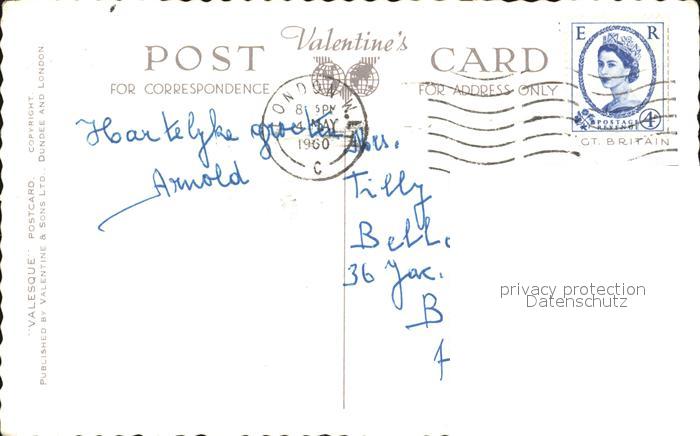 POST Valentine's CARD
FOR CORRESPONDENCE FOR ADDRESS ONLY
E R
POSTAGE
REVENUE
4D
GT. BRITAIN
LONDON N.W.1
8 15 PM
MAY
1960
C
Hartelyke groeten
Arnold
Mrs.
Tilly
Bell
36 Jac.
B
"VALESQUE" POSTCARD. COPYRIGHT
PUBLISHED BY VALENTINE & SONS LTD., DUNDEE AND LONDON.
privacy protection
Datenschutz